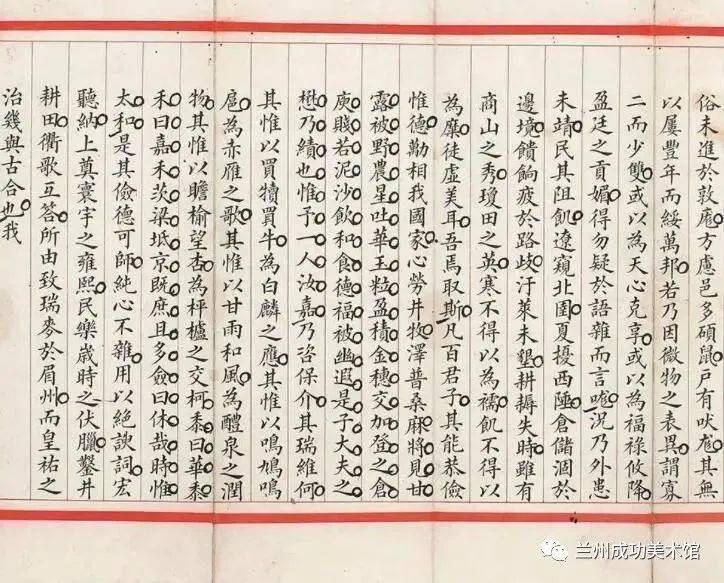 俗未進於敦龐方慮邑多碩鼠戶有吠尨其無
以屢豐年而綏萬邦若乃因微物之表異謂寡
二而少雙或以為天心克享或以為福祿攸降
盈廷之貢媚得勿疑於語雜而言嚨況乃外患
未靖民其阻飢遼窺北圉夏擾西陲倉儲涸於
邊境饋餉疲於路歧汙萊未墾耕耨失時雖有
商山之秀瓊田之英寒不得以為襦飢不得以
為糜徒虛美耳吾焉取斯凡百君子其能恭儉
惟德勤相我國家心勞井牧澤普桑麻將見甘
露被野農星吐華玉粒盈積金穗交加登之倉
庾賤若泥沙飲和食德福被幽遐是子大夫之
懋乃績也惟予一人汝嘉乃咨保介其瑞維何
其惟以買犢買牛為白麟之應其惟以鳴鳩鳴
扈為赤雁之歌其惟以甘雨和風為醴泉之潤
物其惟以瞻榆望杏為枰櫨之交柯黍曰華黍
禾曰嘉禾茨梁坻京既庶且多僉曰休哉時惟
太和是其儉德可師純心不雜用以絕諛詞宏
聽納上奠寰宇之雍熙民樂歲時之伏臘鑿井
耕田衢歌互答所由致瑞麥於眉州而皇祐之
治幾與古合也我
兰州成功美术馆